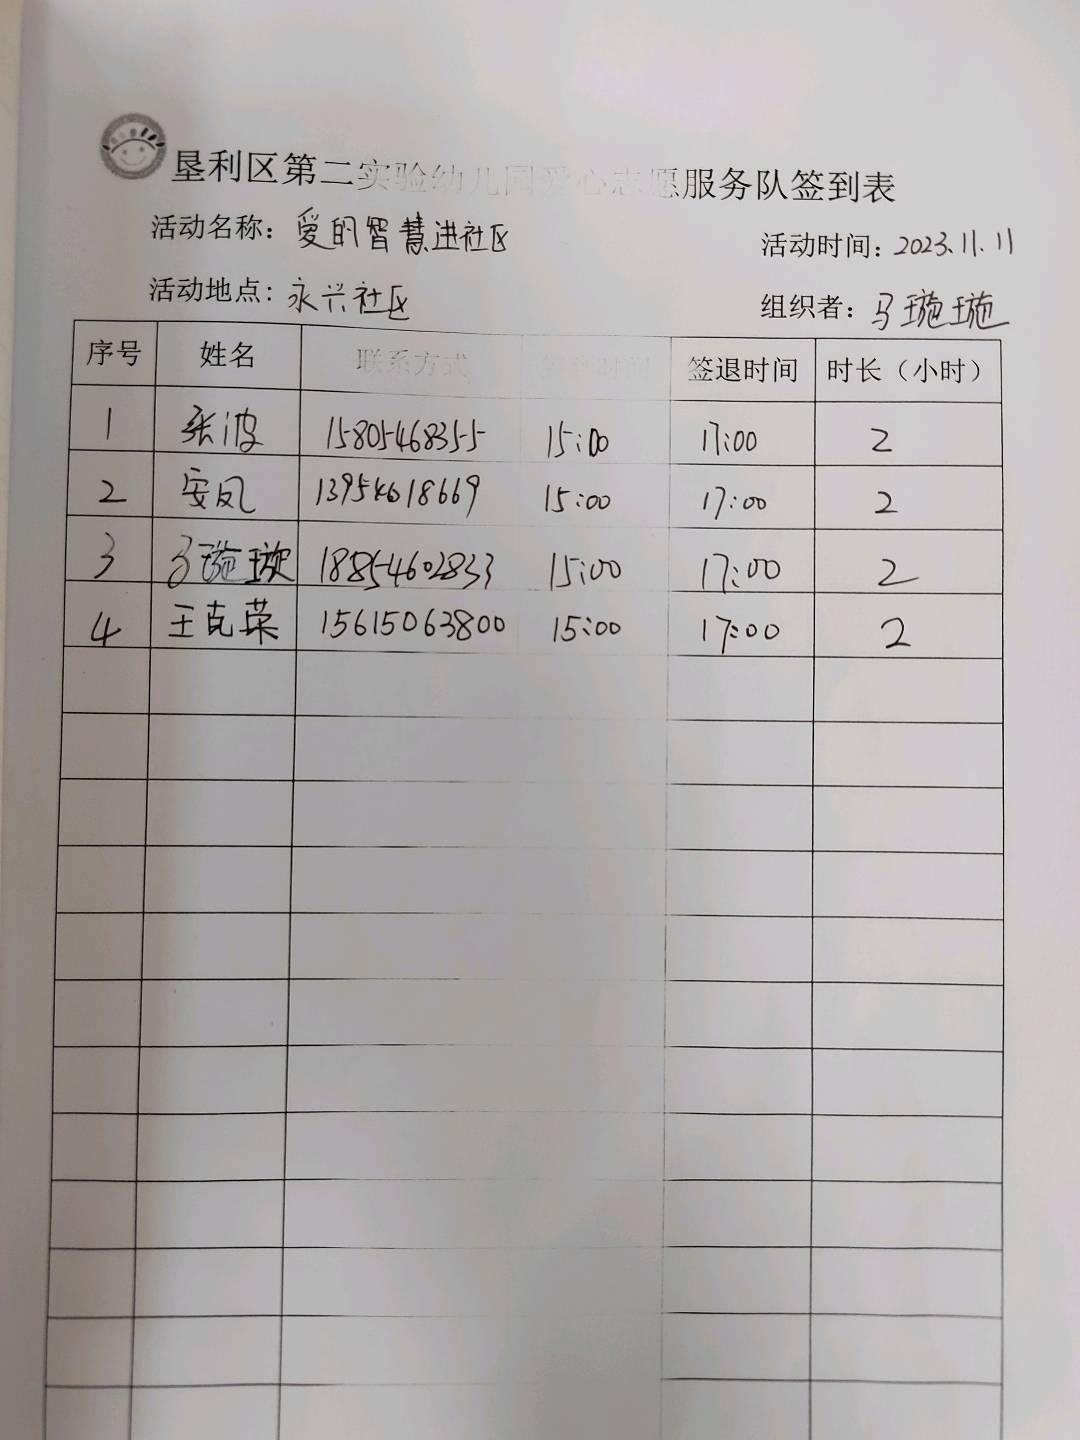 垦利区第二实验幼儿园爱心志愿服务队签到表
活动名称：爱的智慧进社区 活动时间：2023.11.11
活动地点：永兴社区 组织者：马璇璇
序号 姓名 联系方式 签到时间 签退时间 时长（小时）
1 张波 15805468355 15:00 17:00 2
2 安凤 13954618669 15:00 17:00 2
3 马璇璇 18854602833 15:00 17:00 2
4 王克荣 15615063800 15:00 17:00 2